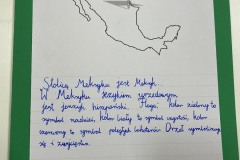 Stolicą Meksyku jest Meksyk.
W Meksyku językiem urzędowym
jest język hiszpański. Flaga: kolor zielony to
symbol nadziei, kolor biały to symbol czystości, kolor
czerwony to symbol poległych bohaterów. Orzeł symbolizuje
się i zwycięstwo.